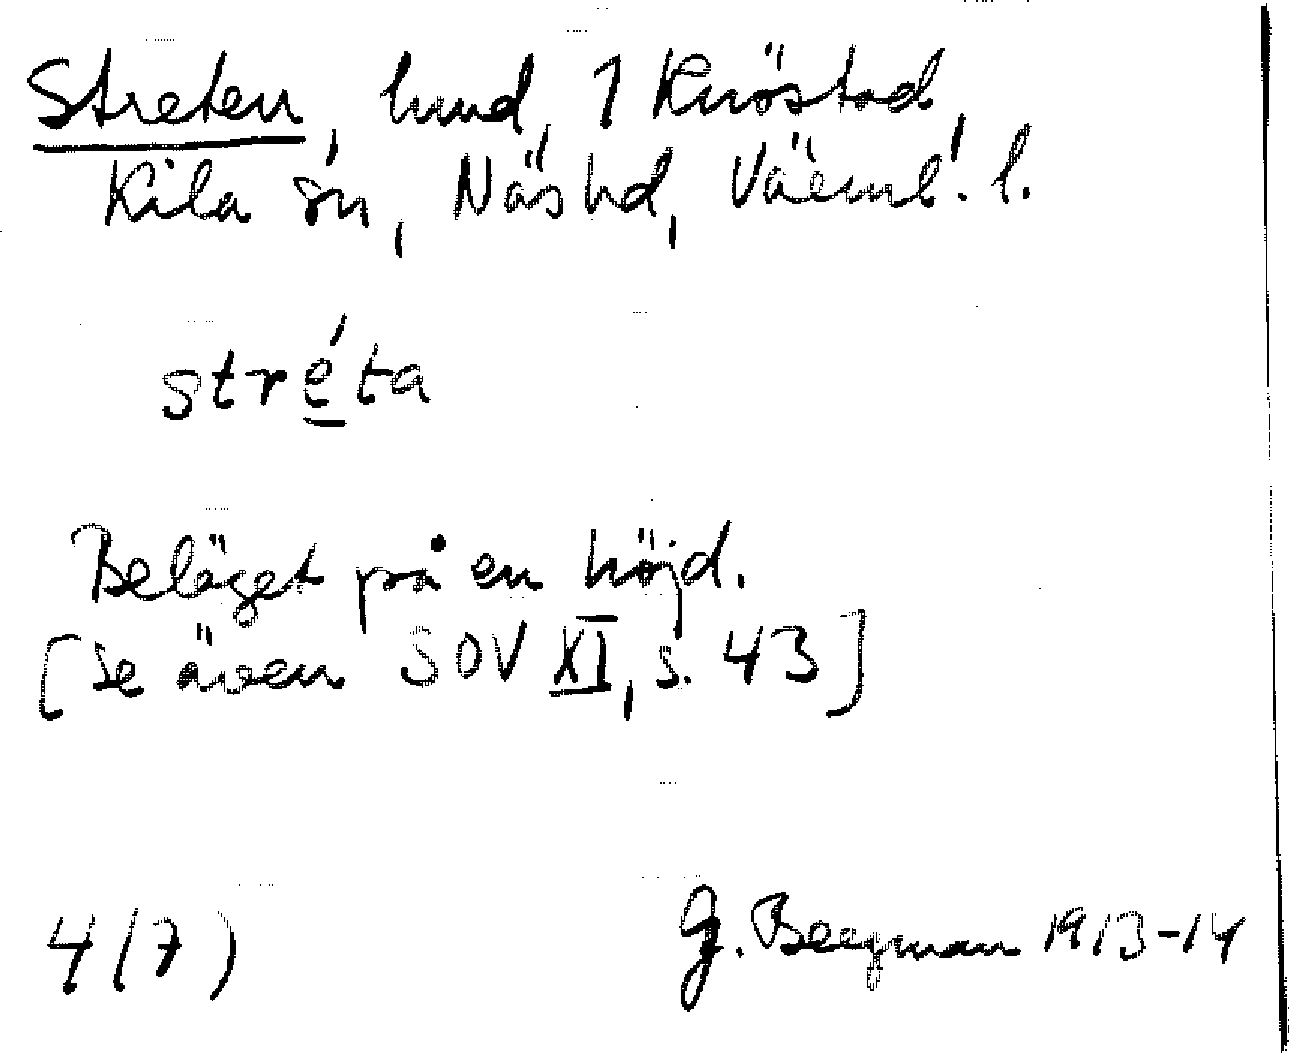 Streten, hmd, 1 Knöstad
Kila sn, Näs hd, Värml. l.
stréta
Beläget på en höjd.
[se även SOV XI, s. 43]
4(7) G. Bergman 1913-14